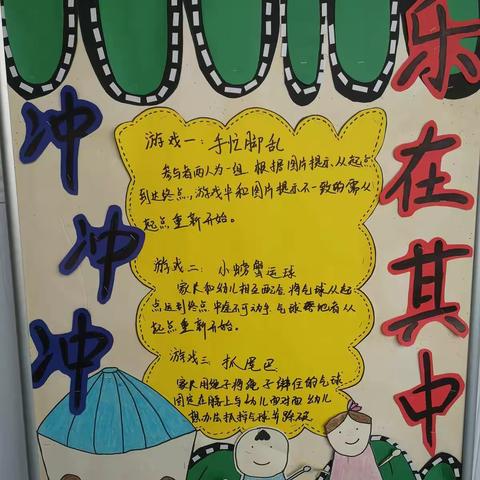 冲冲冲
乐在其中
游戏一：手忙脚乱
参与者两人为一组 根据图片提示从起点
到达终点，游戏中和图片提示不一致的需从
起点重新开始。
游戏二：小螃蟹运球
家长和幼儿相互配合将气球从起
点运到终点 中途不可动手 气球落地者从
起点重新开始。
游戏三 抓尾巴
家长用绳子将绳子绑住的气球
固定在腿上与幼儿面对面 幼儿
想办法抓指气球并踩破